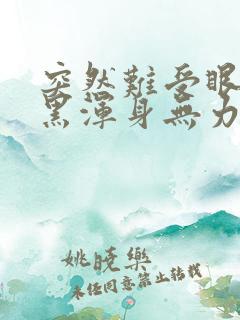 突然難受眼
黑渾身無力
姚曉樂
未任同意禁止转载